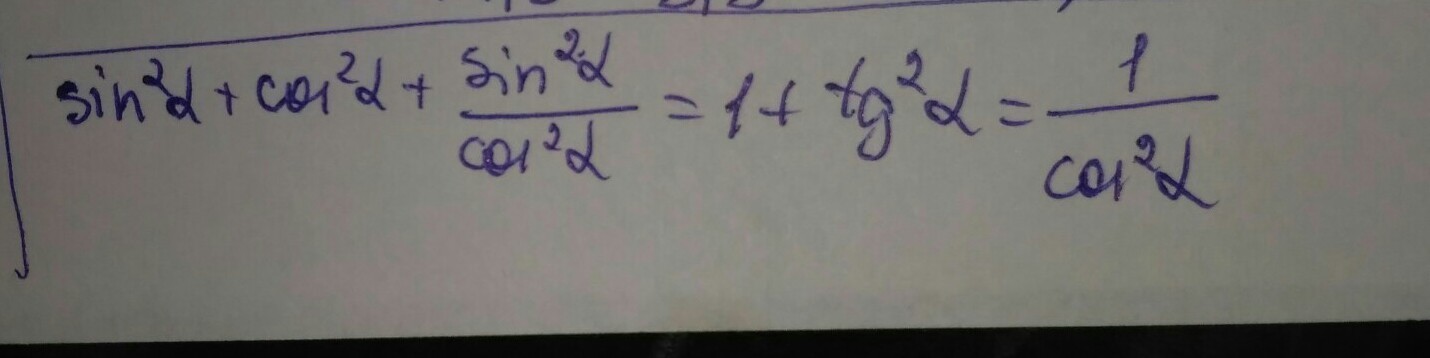 sin²α + cos²α + sin²α/cos²α = 1 + tg²α = 1/cos²α